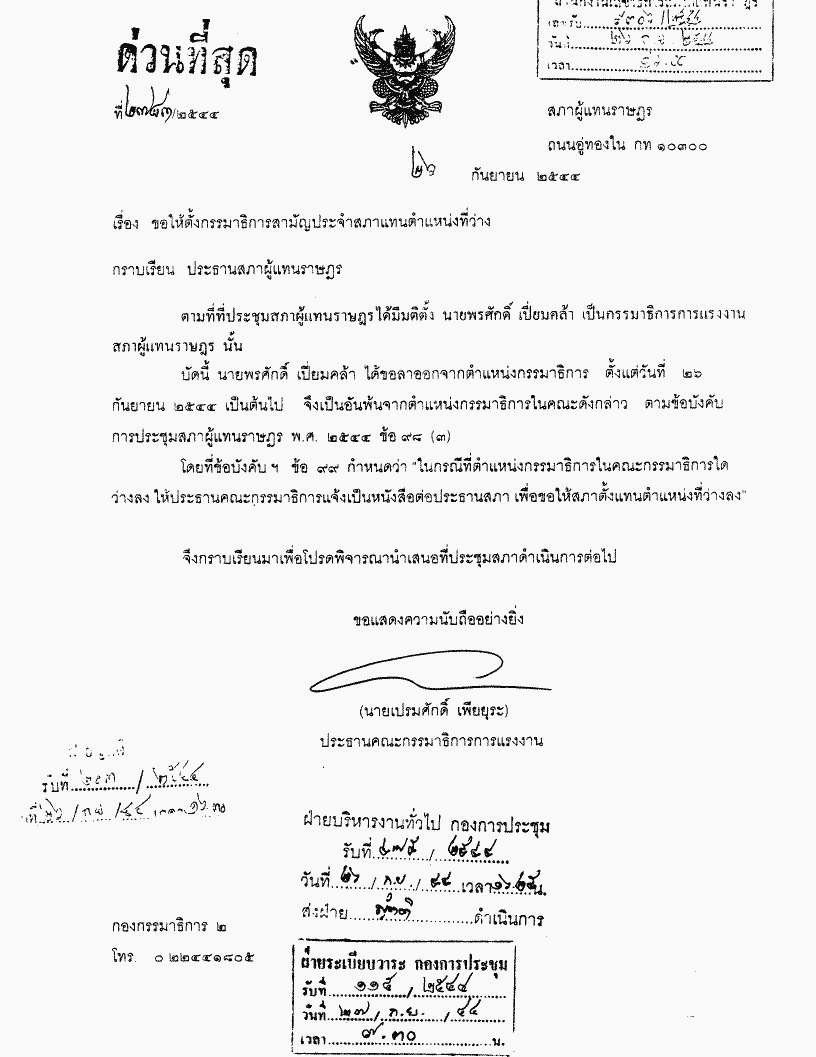 ด่วนที่สุด
เลขรับ
เวลา
ที่ /๒๕๔๔
สภาผู้แทนราษฎร
ถนนอู่ทองใน กท ๑๐๓๐๐
๒๖ กันยายน ๒๕๔๔
เรื่อง ขอให้ตั้งกรรมาธิการสามัญประจำสภาแทนตำแหน่งที่ว่าง
กราบเรียน ประธานสภาผู้แทนราษฎร
ตามที่ที่ประชุมสภาผู้แทนราษฎรได้มีมติตั้ง นายพรศักดิ์ เปี่ยมคล้า เป็นกรรมาธิการการแรงงาน
สภาผู้แทนราษฎร นั้น
บัดนี้ นายพรศักดิ์ เปี่ยมคล้า ได้ขอลาออกจากตำแหน่งกรรมาธิการ ตั้งแต่วันที่ ๒๖
กันยายน ๒๕๔๔ เป็นต้นไป จึงเป็นอันพ้นจากตำแหน่งกรรมาธิการในคณะดังกล่าว ตามข้อบังคับ
การประชุมสภาผู้แทนราษฎร พ.ศ. ๒๕๔๔ ข้อ ๙๘ (๓)
โดยที่ข้อบังคับ ฯ ข้อ ๙๙ กำหนดว่า "ในกรณีที่ตำแหน่งกรรมาธิการในคณะกรรมาธิการใด
ว่างลง ให้ประธานคณะกรรมาธิการแจ้งเป็นหนังสือต่อประธานสภา เพื่อขอให้สภาตั้งแทนตำแหน่งที่ว่างลง"
จึงกราบเรียนมาเพื่อโปรดพิจารณานำเสนอที่ประชุมสภาดำเนินการต่อไป
ขอแสดงความนับถืออย่างยิ่ง
(นายเปรมศักดิ์ เพียยุระ)
ประธานคณะกรรมาธิการการแรงงาน
รับที่ / ๒๕๔๔
๒๖ / ก.ย. / ๔๔ เวลา ๑๖.๓๐
ฝ่ายบริหารงานทั่วไป กองการประชุม
รับที่ / ๒๕๔๔
วันที่ ๒๖ / ก.ย. / ๔๔ เวลา น.
ส่งฝ่าย ญัตติ ดำเนินการ
กองกรรมาธิการ ๒
โทร. ๐ ๒๒๔๔๑๘๐๕
ฝ่ายระเบียบวาระ กองการประชุม
รับที่ ๑๑๕ / ๒๕๔๔
วันที่ ๒๗ / ก.ย. / ๔๔
เวลา ๙.๓๐ น.